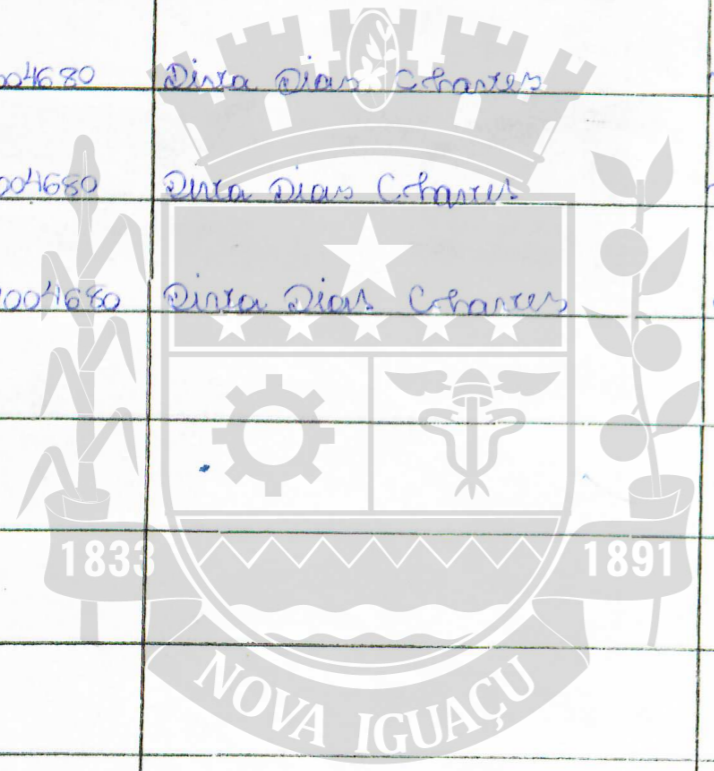 004680 Dinta Dias Charres
004680 Dinta Dias Charres
1004680 Dinta Dias Charres
1833 1891
NOVA IGUAÇU